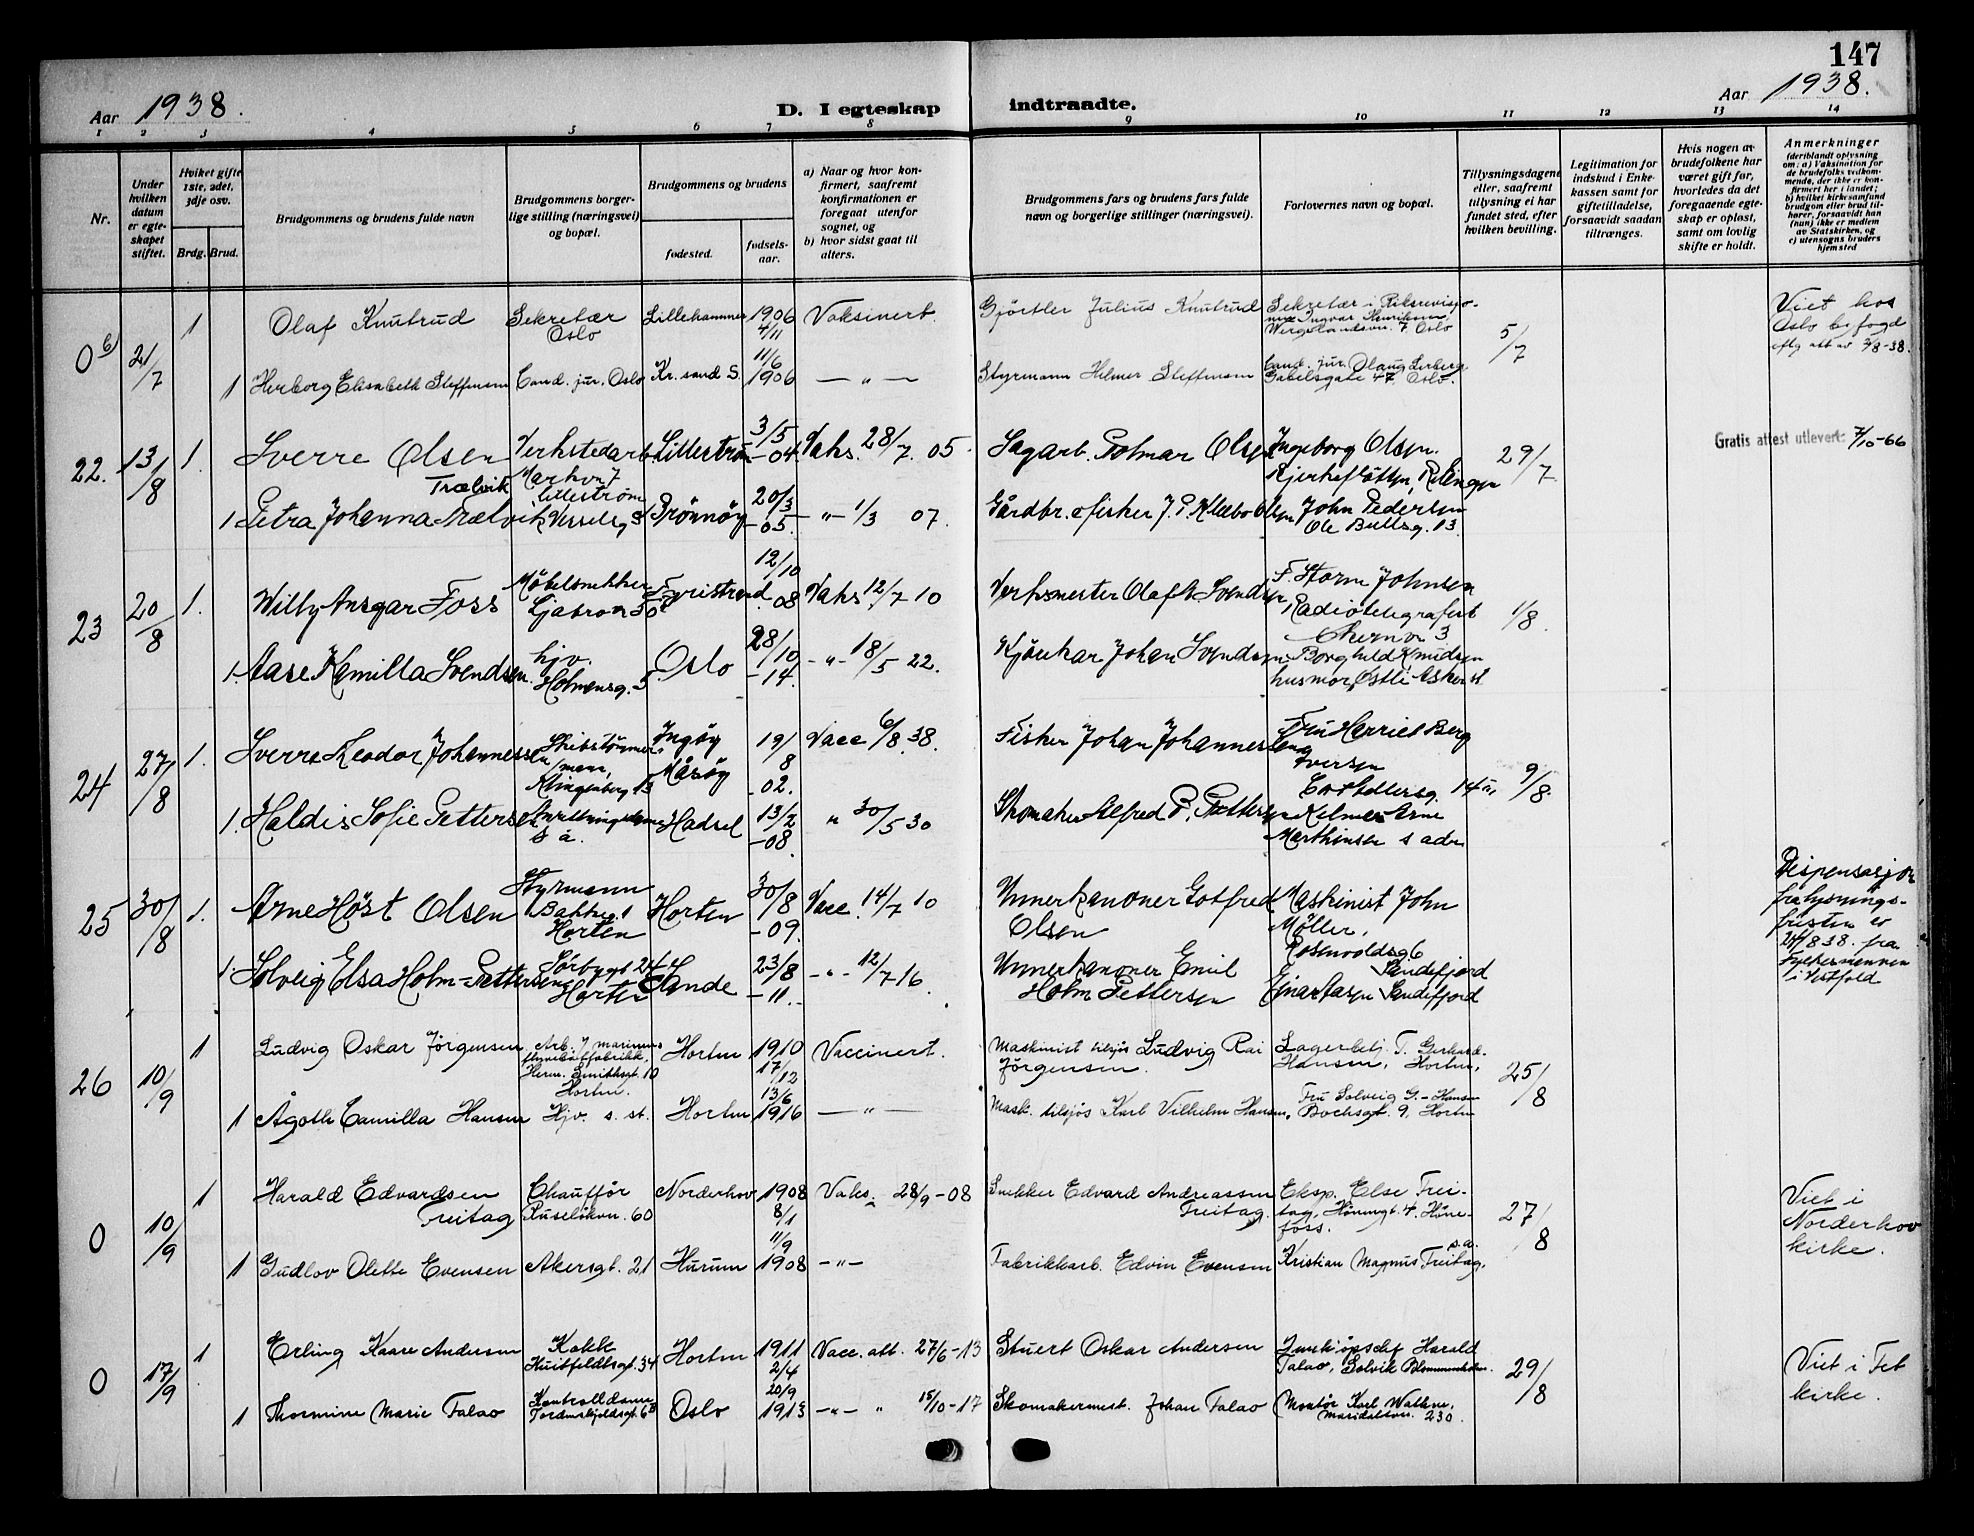 147
Aar 1938.
D. I egteskap indtraadte.
Aar 1938.
1 2 3 4 5 6 7 8 9 10 11 12 13 14
Nr.
Under hvilken datum er egteskapet stiftet.
Hvilket gifte 1ste, 2det, 3dje osv.
Brdg. Brud.
Brudgommens og brudens fulde navn
Brudgommens borgerlige stilling (næringsvei) og bopæl.
Brudgommens og brudens
fødested.
fødselsaar.
a) Naar og hvor konfirmert, saafremt konfirmationen er foregaat utenfor sognet, og
b) hvor sidst gaat til alters.
Brudgommens fars og brudens fars fulde navn og borgerlige stillinger (næringsvei).
Forlovernes navn og bopæl.
Tillysningsdagene eller, saafremt tillysning ei har fundet sted, efter hvilken bevilling.
Legitimation for indskud i Enkekassen samt for giftetilladelse, forsaavidt saadan tiltrænges.
Hvis nogen av brudefolkene har været gift før, hvorledes da det foregaaende egteskap er opløst, samt om lovlig skifte er holdt.
Anmerkninger (deriblandt oplysning om: a) Vaksination for de brudefolks vedkommende, der ikke er konfirmert her i landet; b) hvilket kirkesamfund brudgom eller brud tilhører, forsaavidt han (hun) ikke er medlem av Statskirken, og c) utensogns bruders hjemsted
0 6) 21/7 1 Olaf Knutrud Sekretær Oslo Lillehammer 1906 4/11 Vaksinert. Gjørtler Julius Knutrud Sekretær i Riksrevisjonen Ingvar Henriksen, Wergelandsvn. 7 Oslo 5/7 Viet hos Oslo byfogd
1 Herborg Elisabeth Steffensen Cand. jur. Oslo Kr.sand S. 11/6 1906 — " — Styrmann Helmer Steffensen Cand. jur. Olaug Lerberg Gabelsgate 47, Oslo.
22. 13/8 1. Sverre Olsen Verkstedarb. Lillestrøm 3/5 -04 Vaks. 28/7 05. Sagarb. Olsen Ingeborg Olsen. 29/7 Gratis attest utlevert: 7/10-66
Trælvik
1 Petra Johanna Trælvik Brönnöy 20/3 -05 — " — 1/3 07. Gårdbr. o fisker J. P. John Pedersen Ole Bullsg. 13.
23 20/8 1. Willy Ansgar Foss Møbelsnekker Ljabrovn 30 12/10 08 Vaks 12/7 10 Verksmester Olaf A. Svendsen F. Storm Johnsen Radiotelegrafist 3 1/8.
1. Aase Kamilla Svendsen. hjv. Holmensg. 5 Oslo 28/10 -14. - " - 18/5 22. Johan Svendsen Borghild Knudsen husmor, Østli Asker st.
24 27/8 1. Sverre Teodor Johannessen Skibstømmermann, Klingenberg 13 Ingöy Måsöy 19/8 -02. Vacc 6/8. 38. Fisker Johan Johannessen Fru Harriet Berg Iversen 9/8.
1. Haldis Sofie Pettersen Hadsel 13/2 -08. " 30/5 30 Skomaker Alfred P. Pettersen Arne Marthinsen s adr.
25 30/8 1. Arne Höst Olsen Styrmann Bakkeg. 1 Horten Horten 30/8 -09. Vacc. 14/7 10 Minerkanoner Gotfred Olsen Maskinist John Møller, Rosenvoldsg 6 Sandefjord Dispensasjon fra lysningsfristen er 24/8 38. fra fylkesmannen i Vestfold
1. Solveig Elsa Holm-Pettersen Sörbygt 24 Horten Sande 23/8 -11. - " - 12/7 16. Minerkanoner Emil Holm Pettersen Sandefjord
26 10/9 1 Ludvig Oskar Jörgensen Arb. v marinens flyvebåtfabrikk, Herm. Smithsgt. 10 Horten. Horten 1910 17/12 Vaccinert. Maskinist tilsjös Ludvig Rai Jörgensen. Lagerbetj. T. Gerhard-Hansen, Horten, 25/8
1 Ågoth Camilla Hansen Hjv. s. st. Horten 13/6 1916 — " — Mask. tilsjös Karl Vilhelm Hansen, Fru Solveig G.-Hansen Bochsgt. 9, Horten
0 10/9 1 Harald Edvardsen Freitag Chauffør Ruseløkvn. 60 Norderhov 1908 8/1 Vaks. 28/9-08 Snekker Edvard Andreassen Freitag. Eksp. Else Freitag, Høningt. 4, Hønefoss. 27/8 Viet i Norderhov kirke.
1 Gudlov Olette Evensen Akersgt. 21 Hurum 11/9 1908 - " - Fabrikkarb. Edvin Evensen Kristian Magnus Freitag, s.a.
0 17/9 1 Erling Kaare Andersen Kokk Huitfeldtsgt. 34 Horten 1911 2/4 Vacc. att. 27/6-13 Stuert Oskar Andersen Innkjöpschef Harald Talao, Solvik Blommenholm. 29/8 Viet i Fet kirke.
1 Thormine Marie Talao Kontrolldame Tordenskjoldsgt. 6B Oslo 20/9 1913 - " - " 15/10-17 Skomakermest. Johan Talao Montör Karl Wathne, Maridalsvn. 230.